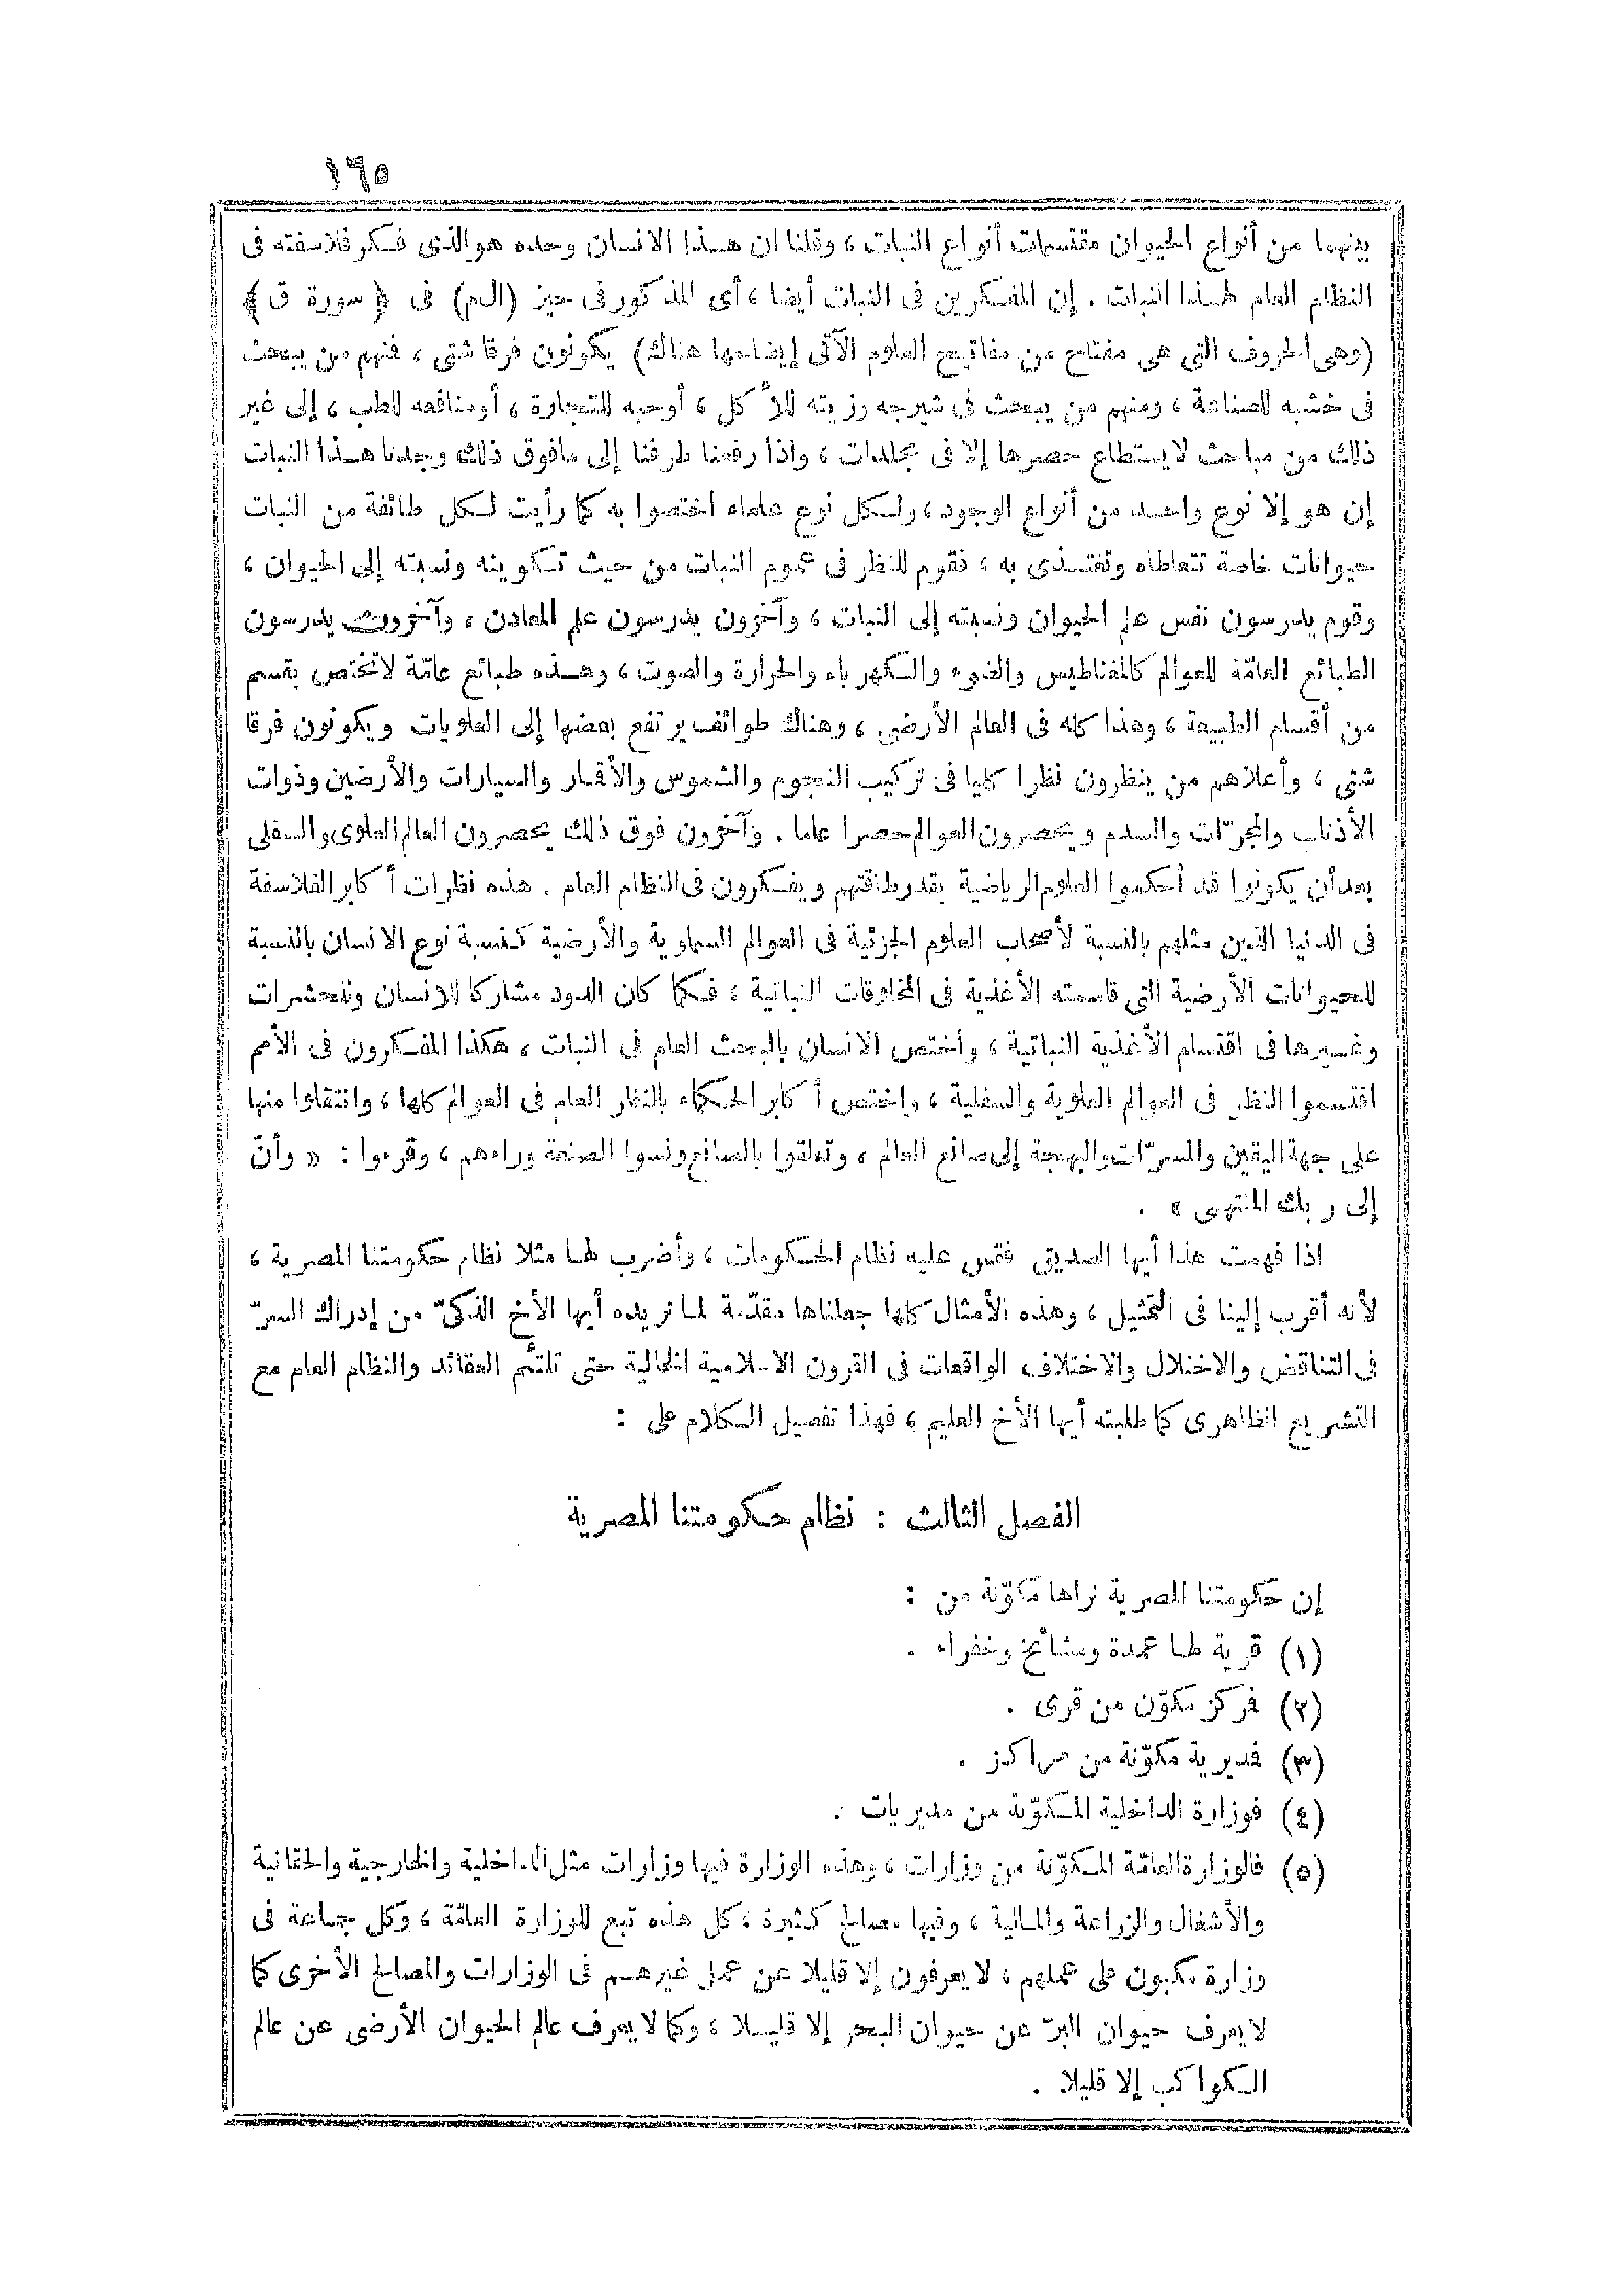 ١٦٥
بينهما من أنواع الحيوان مقتسمات أنواع النبات ، وقلنا ان هذا الانسان وحده هو الذى فكر فلاسفته فى
النظام العام لهذا النبات . إن المفكرين فى النبات أيضا ، أى المذكور فى حيز (الم) فى ﴿ سورة ق ﴾
(وهى الحروف التى هى مفتاح من مفاتيح العلوم الآتى إيضاحها هناك) يكونون فرقا شتى ، فمنهم من يبحث
فى خشبه للصناعة ، ومنهم من يبحث فى شيرجه وزيته للأكل ، أوحبه للتجارة ، أومنافعه للطب ، إلى غير
ذلك من مباحث لايستطاع حصرها إلا فى مجلدات ، واذا رفعنا طرفنا إلى مافوق ذلك وجدنا هذا النبات
إن هو إلا نوع واحد من أنواع الوجود ، ولكل نوع علماء اختصوا به كما رأيت لكل طائفة من النبات
حيوانات خاصة تتعاطاه وتغتذى به ، فقوم للنظر فى عموم النبات من حيث تكوينه ونسبته إلى الحيوان ،
وقوم يدرسون نفس علم الحيوان ونسبته إلى النبات ، وآخرون يدرسون علم المعادن ، وآخرون يدرسون
الطبائع العامّة للعوالم كالمغناطيس والضوء والكهرباء والحرارة والصوت ، وهذه طبائع عامّة لاتختص بقسم
من أقسام الطبيعة ، وهذا كله فى العالم الأرضى ، وهناك طوائف يرتفع بعضها إلى العلويات ويكونون فرقا
شتى ، وأعلاهم من ينظرون نظرا كليا فى تركيب النجوم والشموس والأقمار والسيارات والأرضين وذوات
الأذناب والمجرّات والسدم ويحصرون العوالم حصرا عاما . وآخرون فوق ذلك يحصرون العالم العلوى والسفلى
بعد أن يكونوا قد أحكموا العلوم الرياضية بقدر طاقتهم ويفكرون فى النظام العام . هذه نظرات أكابر الفلاسفة
فى الدنيا الذين مثلهم بالنسبة لأصحاب العلوم الجزئية فى العوالم السماوية والأرضية كنسبة نوع الانسان بالنسبة
للحيوانات الأرضية التى قاسمته الأغذية فى المخلوقات النباتية ، فكما كان الدود مشاركا للانسان وللحشرات
وغيرها فى اقتسام الأغذية النباتية ، واختص الانسان بالبحث العام فى النبات ، هكذا المفكرون فى الأمم
اقتسموا النظر فى العوالم العلوية والسفلية ، واختص أكابر الحكماء بالنظر العام فى العوالم كلها ، وانتقلوا منها
على جهة اليقين والمسرّات والبهجة إلى صانع العالم ، وتعلقوا بالصانع ونسوا الصنعة وراءهم ، وقرءوا : « وأنّ
إلى ربك المنتهى » .
اذا فهمت هذا أيها الصديق فقس عليه نظام الحكومات ، وأضرب لها مثلا نظام حكومتنا المصرية ،
لأنه أقرب إلينا فى التمثيل ، وهذه الأمثال كلها جعلناها مقدّمة لما تريده أيها الأخ الذكىّ من إدراك السرّ
فى التناقض والاختلال والاختلاف الواقعات فى القرون الاسلامية الخالية حتى تلتئم العقائد والنظام العام مع
التشريع الظاهرى كما طلبته أيها الأخ العليم ، فهذا تفصيل الكلام على :
الفصل الثالث : نظام حكومتنا المصرية
إن حكومتنا المصرية نراها مكوّنة من :
(١) قرية لها عمدة ومشائخ وخفراء .
(٢) فركز مكوّن من قرى .
(٣) فديرية مكوّنة من مراكز .
(٤) فوزارة الداخلية المكوّنة من مديريات .
(٥) فالوزارة العامّة المكوّنة من وزارات ، وهذه الوزارة فيها وزارات مثل الداخلية والخارجية والحقانية
والأشغال والزراعة والمالية ، وفيها مصالح كثيرة ، كل هذه تبع للوزارة العامّة ، وكل جماعة فى
وزارة مكبون على عملهم ، لايعرفون إلا قليلا عن عمل غيرهم فى الوزارات والمصالح الأخرى كما
لايعرف حيوان البرّ عن حيوان البحر إلا قليلا ، وكما لايعرف عالم الحيوان الأرضى عن عالم
الكواكب إلا قليلا .